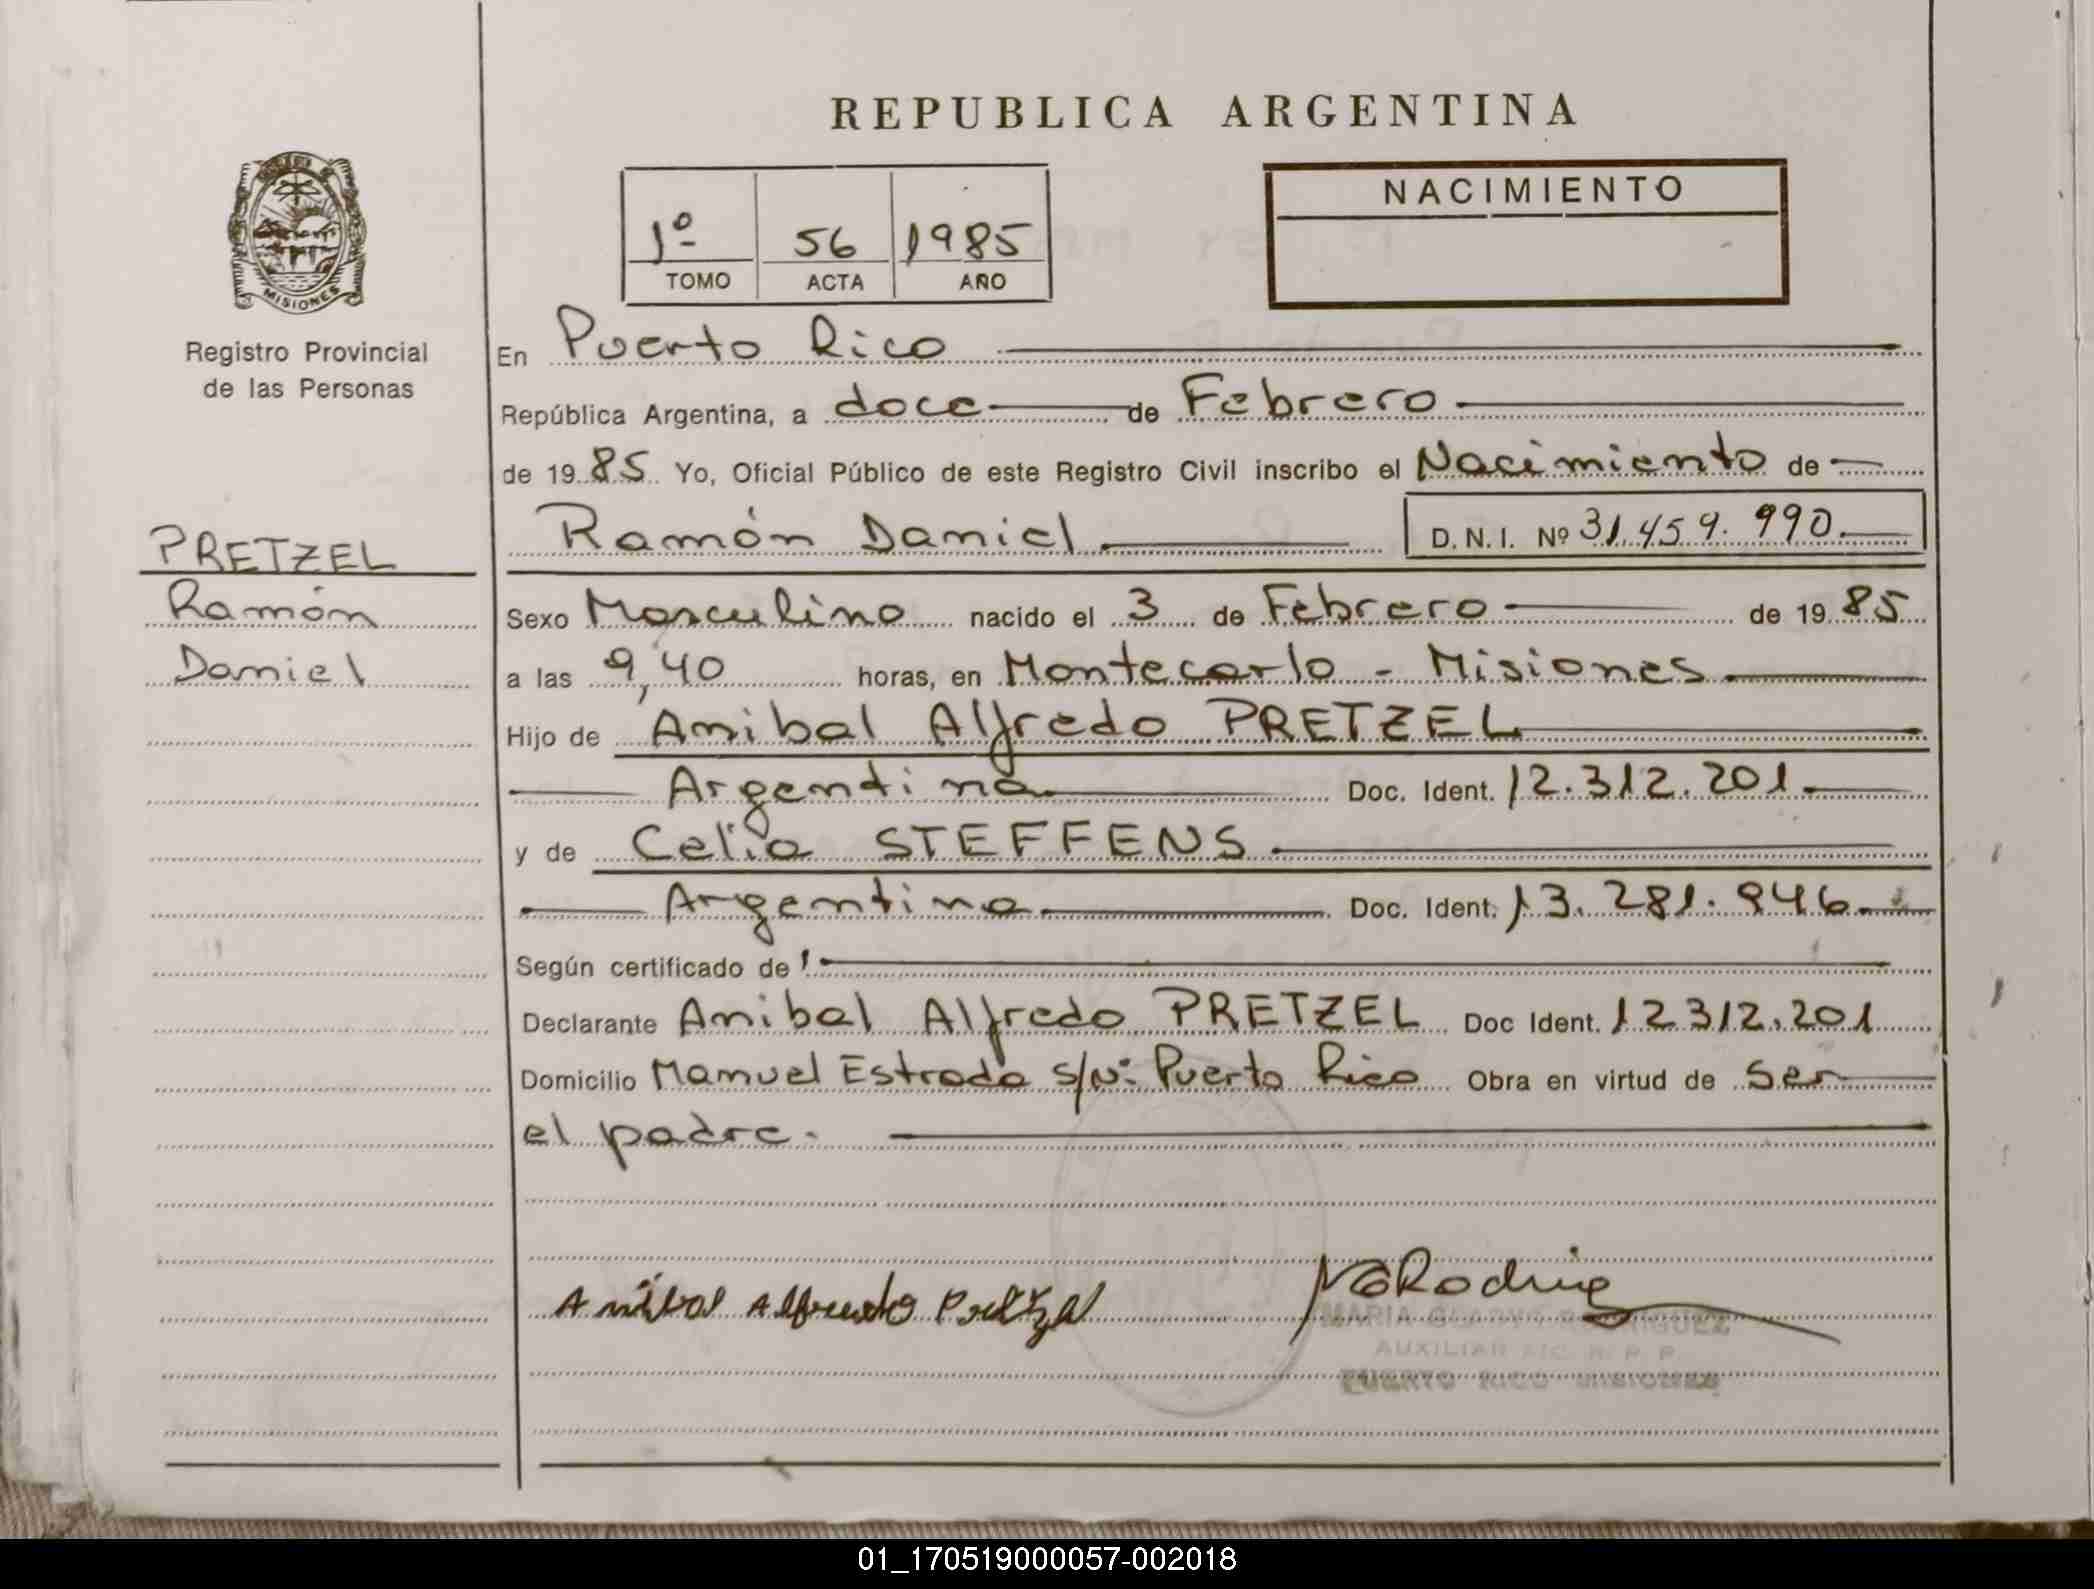 REPUBLICA ARGENTINA
MISIONES
Registro Provincial
de las Personas
1º 56 1985
TOMO ACTA AÑO
NACIMIENTO
En Puerto Rico
República Argentina, a doce de Febrero
de 1985 Yo, Oficial Público de este Registro Civil inscribo el Nacimiento de
Ramón Daniel D.N.I. Nº 31.459.990
PRETZEL
Ramón
Daniel
Sexo Masculino nacido el 3 de Febrero de 1985
a las 9,40 horas, en Montecarlo - Misiones
Hijo de Anibal Alfredo PRETZEL
Argentina Doc. Ident. 12.312.201
y de Celia STEFFENS
Argentina Doc. Ident. 13.281.946
Según certificado de
Declarante Anibal Alfredo PRETZEL Doc Ident. 12312.201
Domicilio Manuel Estrada s/Nº Puerto Rico Obra en virtud de ser
el padre.
Anibal Alfredo Pretzel
MARIA GLADYS RODRIGUEZ
AUXILIAR R. P. P.
PUERTO RICO MISIONES
01_170519000057-002018